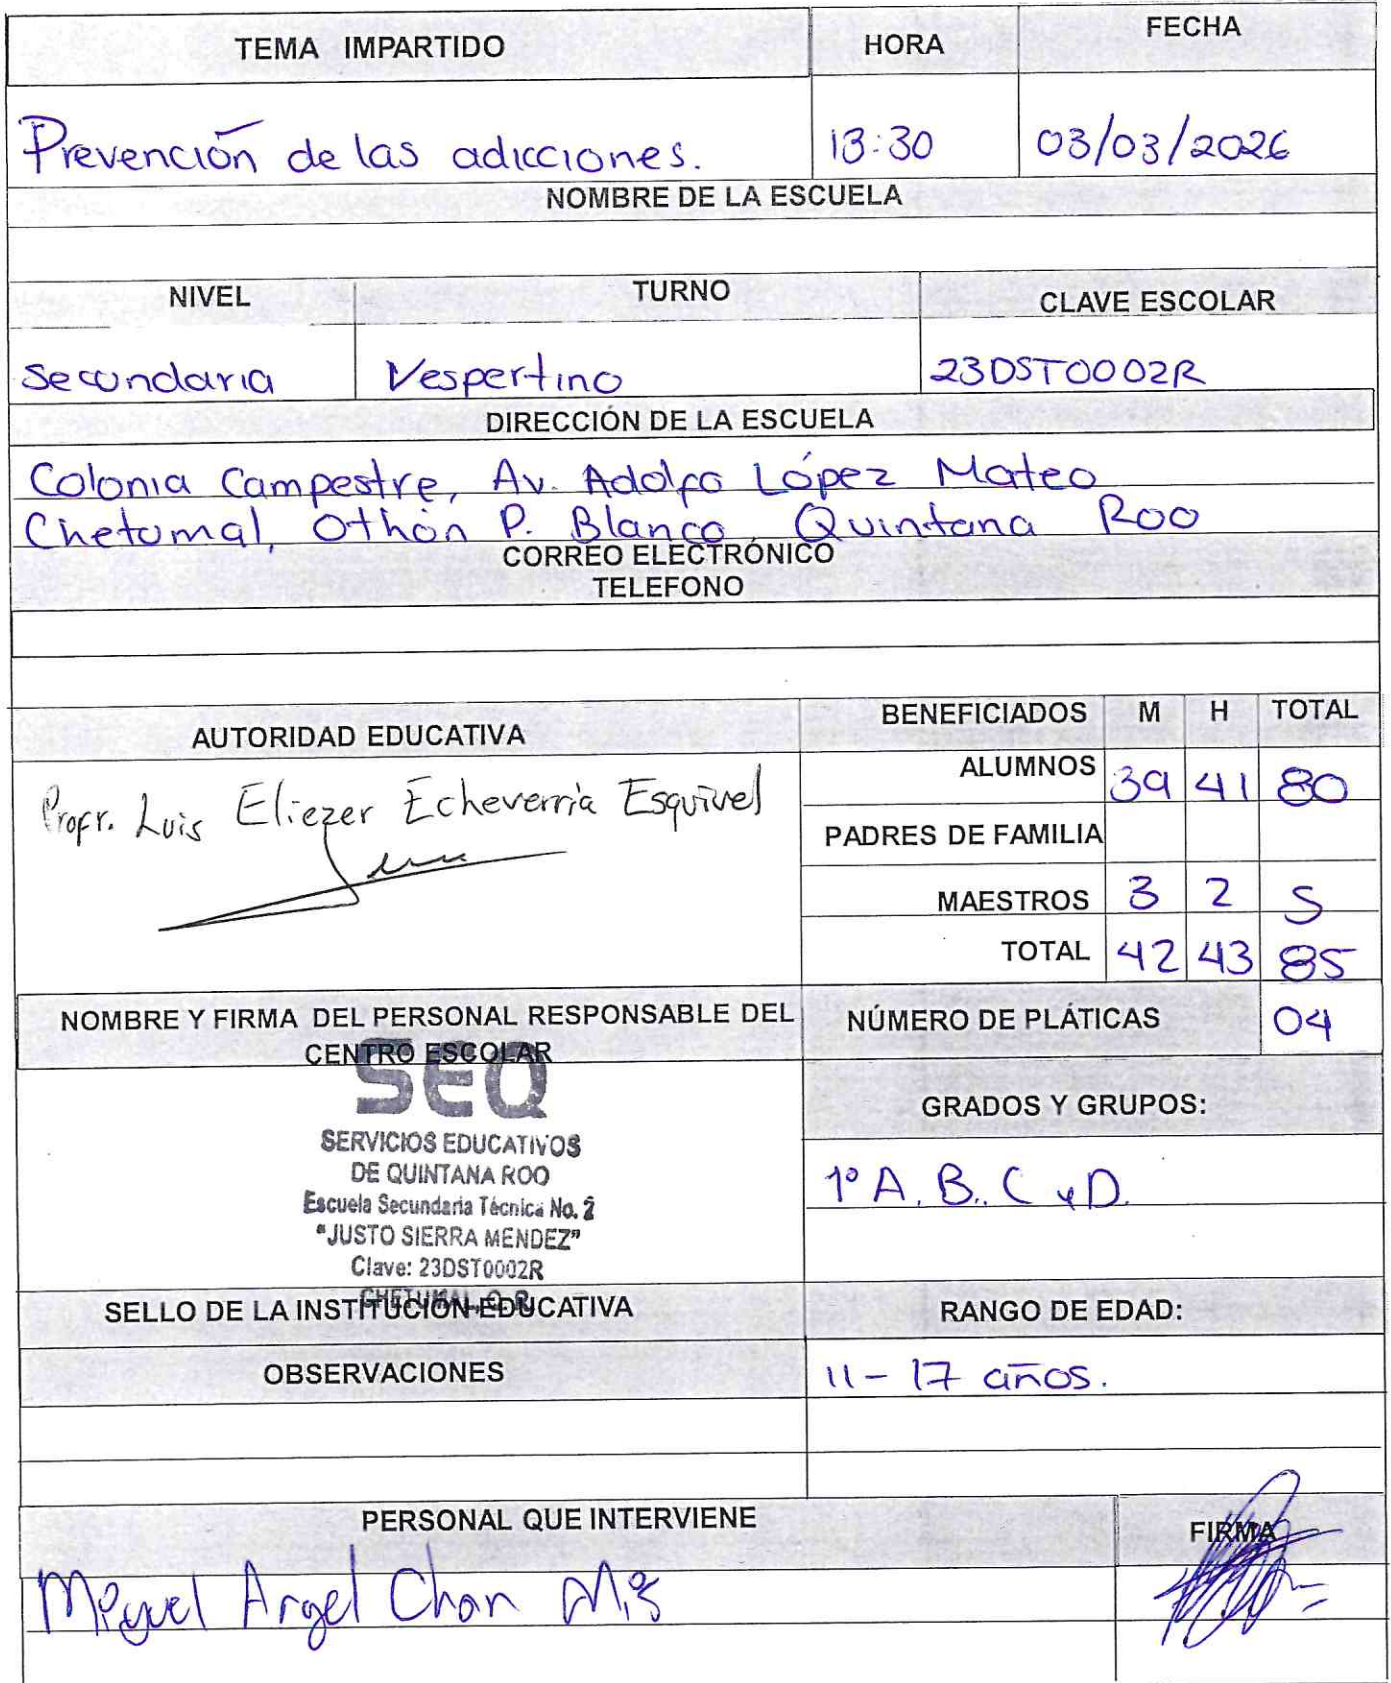 TEMA IMPARTIDO HORA FECHA
Prevención de las adicciones. 13:30 03/03/2026
NOMBRE DE LA ESCUELA
NIVEL TURNO CLAVE ESCOLAR
Secundaria Vespertino 23DST0002R
DIRECCIÓN DE LA ESCUELA
Colonia Campestre, Av. Adolfo López Mateo
Chetumal, Othón P. Blanco Quintana Roo
CORREO ELECTRÓNICO
TELEFONO
AUTORIDAD EDUCATIVA
BENEFICIADOS M H TOTAL
ALUMNOS 39 41 80
Profr. Luis Eliezer Echeverría Esquivel
PADRES DE FAMILIA
MAESTROS 3 2 5
TOTAL 42 43 85
NOMBRE Y FIRMA DEL PERSONAL RESPONSABLE DEL
CENTRO ESCOLAR
NÚMERO DE PLÁTICAS 04
SEQ
SERVICIOS EDUCATIVOS
DE QUINTANA ROO
Escuela Secundaria Técnica No. 2
"JUSTO SIERRA MENDEZ"
Clave: 23DST0002R
CHETUMAL, Q. R.
GRADOS Y GRUPOS:
1° A, B, C y D.
SELLO DE LA INSTITUCIÓN EDUCATIVA
RANGO DE EDAD:
OBSERVACIONES
11 - 17 años.
PERSONAL QUE INTERVIENE FIRMA
Miguel Angel Chan Mis